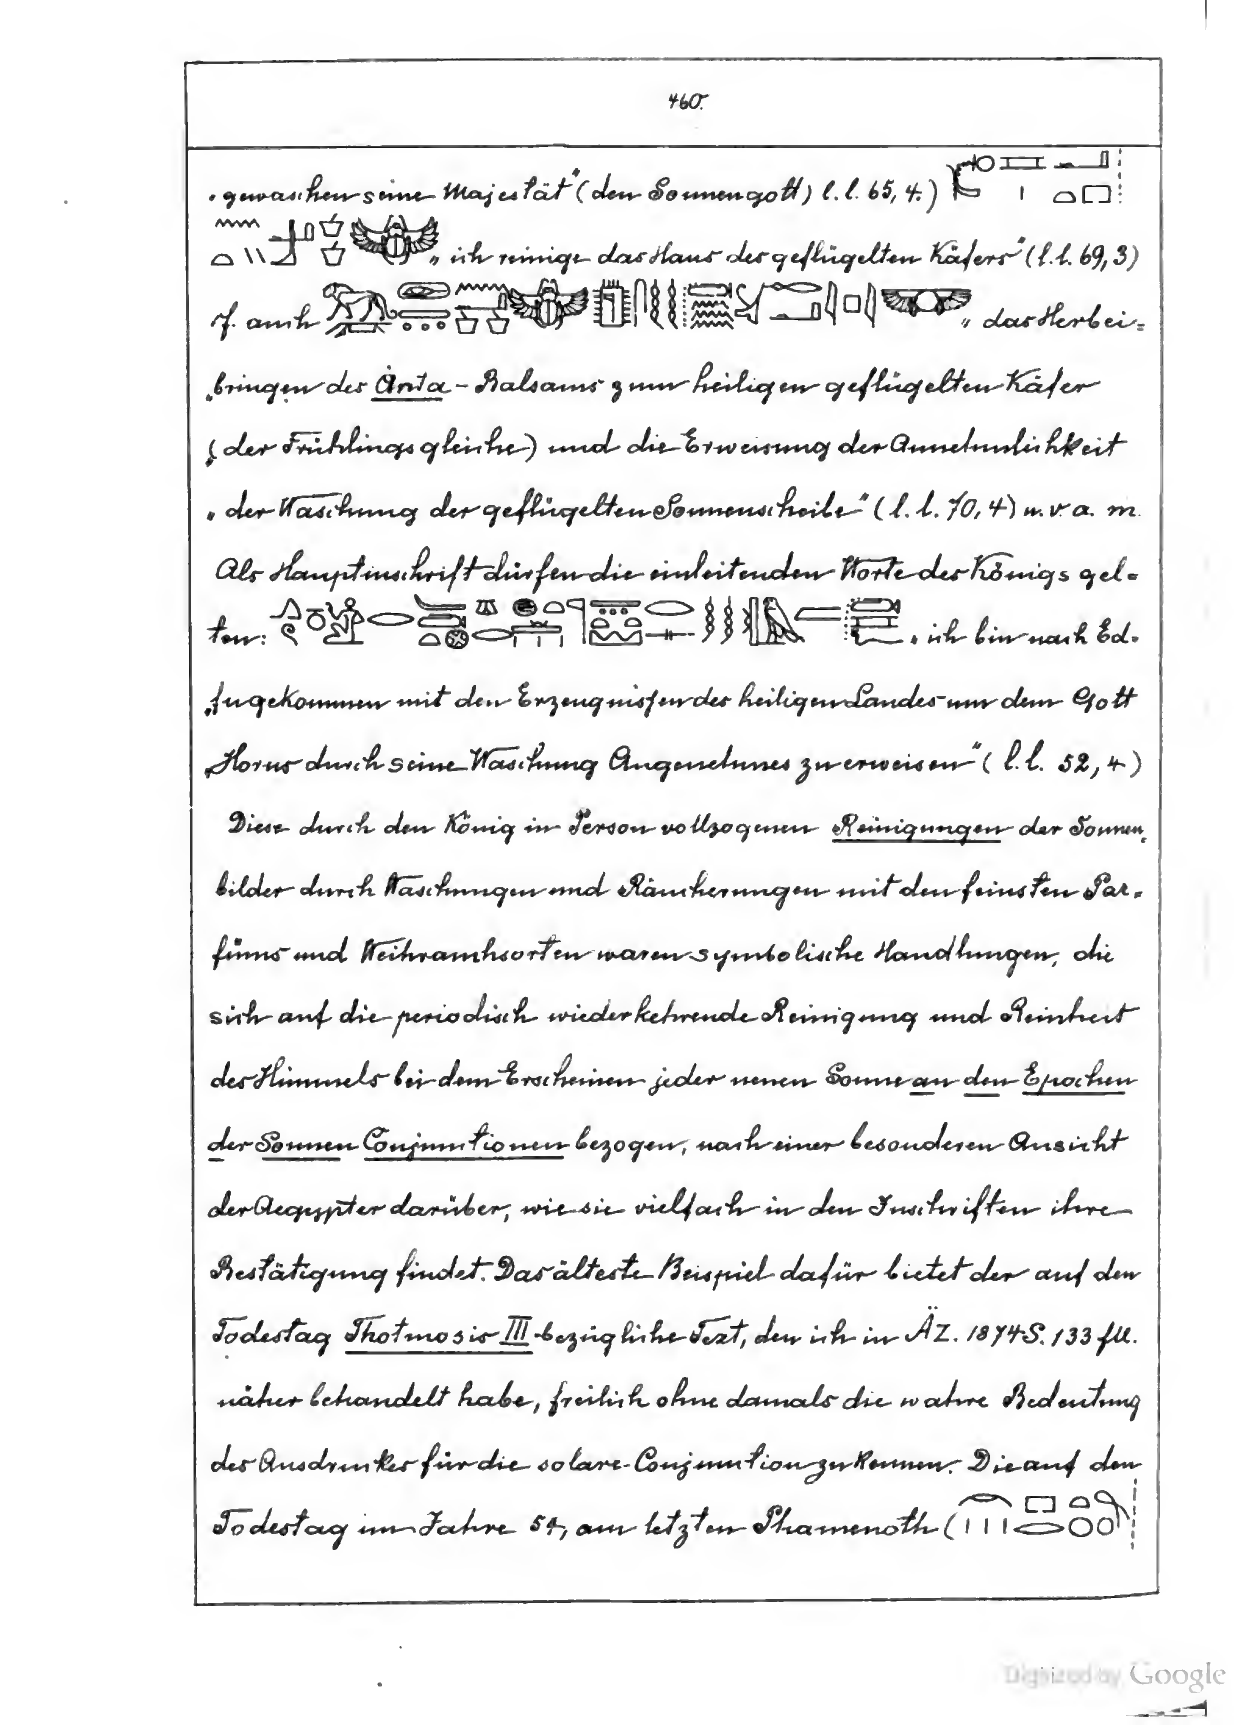 460.
„gewaschen seine Majestät“ (den Sonnengott) l. l. 65, 4.)
„ich reinige das Haus des geflügelten Käfers“ (l. l. 69, 3)
cf. auch „das Herbei-
„bringen des Ānta-Balsams zum heiligen geflügelten Käfer
„(der Frühlingsgleiche) und die Erweisung der Annehmlichkeit
„der Waschung der geflügelten Sonnenscheibe“ (l. l. 70, 4) u. v. a. m.
Als Hauptinschrift dürfen die einleitenden Worte des Königs gel-
ten: „ich bin nach Ed-
„fu gekommen mit den Erzeugnissen des heiligen Landes um dem Gott
„Horus durch seine Waschung Angenehmes zu erweisen“ (l. l. 52, 4)
Diese durch den König in Person vollzogenen Reinigungen der Sonnen-
bilder durch Waschungen und Räucherungen mit den feinsten Par-
füms und Weihrauchsorten waren symbolische Handlungen, die
sich auf die periodisch wiederkehrende Reinigung und Reinheit
des Himmels bei dem Erscheinen jeder neuen Sonne an den Epochen
der Sonnen Conjunctionen bezogen, nach einer besonderen Ansicht
der Aegypter darüber, wie sie vielfach in den Inschriften ihre
Bestätigung findet. Das älteste Beispiel dafür bietet der auf den
Todestag Thotmosis III bezügliche Text, den ich in ÄZ. 1874 S. 133 fll.
näher behandelt habe, freilich ohne damals die wahre Bedeutung
des Ausdruckes für die solare Conjunction zu kennen. Die auf den
Todestag im Jahre 54, am letzten Phamenoth (
Digitized by Google